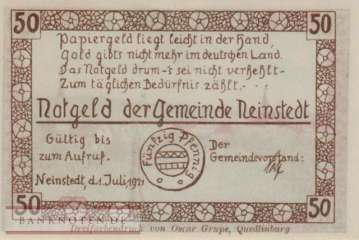 50 50
Papiergeld liegt leicht in der Hand,
Gold gibts nicht mehr im deutschen Land.
Das Notgeld drum - 's sei nicht verhehlt -
Zum täglichen Bedürfnis zählt.
Notgeld der Gemeinde Neinstedt
Gültig bis
zum Aufruf.
Fünfzig Pfennig
Der
Gemeindevorstand:
Neinstedt, d. 1. Juli 1921
50 50
BANKNOTEN.DE
Dreifarbendruck von Oscar Grupe, Quedlinburg